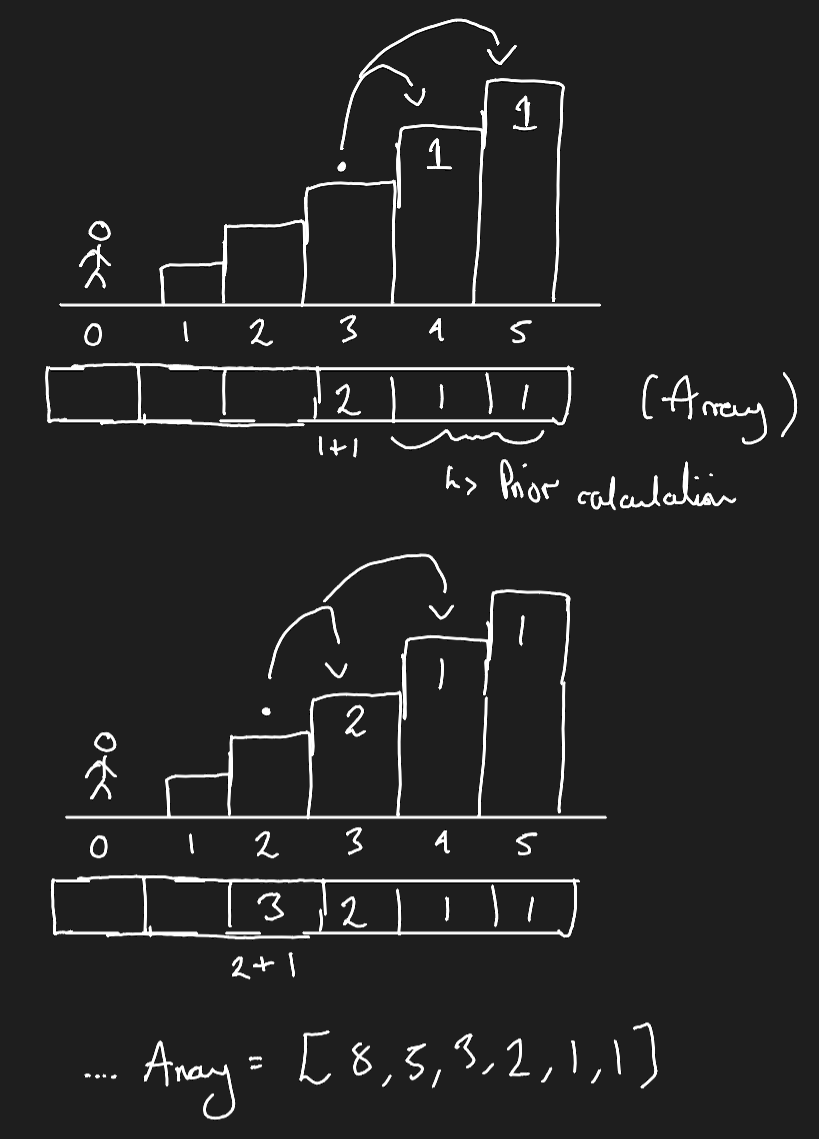 1
1
0 1 2 3 4 5
2 1 1 (Array)
1+1
↳ Prior calculation
1
1
2
0 1 2 3 4 5
3 2 1 1
2+1
.... Array = [8,5,3,2,1,1]